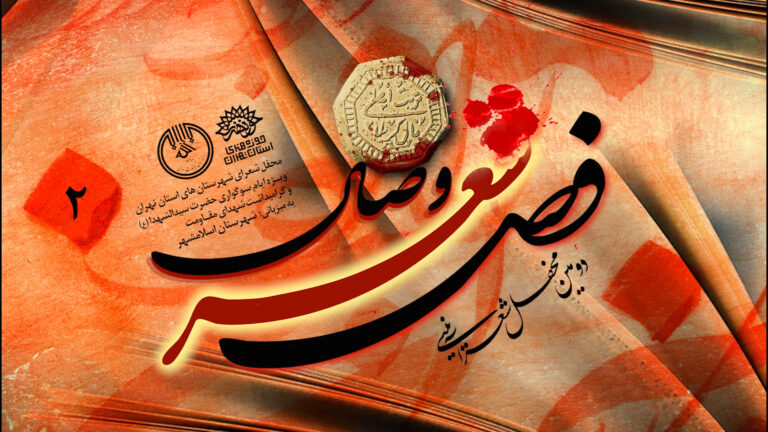 حوزه هنری
استان تهران
محفل شعرای شهرستان های استان تهران
ویژه ایام سوگواری حضرت سیدالشهدا(ع)
و گرامیداشت شهدای مقاومت
به میزبانی: شهرستان اسلامشهر
۲
فصل شعر وصال
دومین محفل شعر آیینی